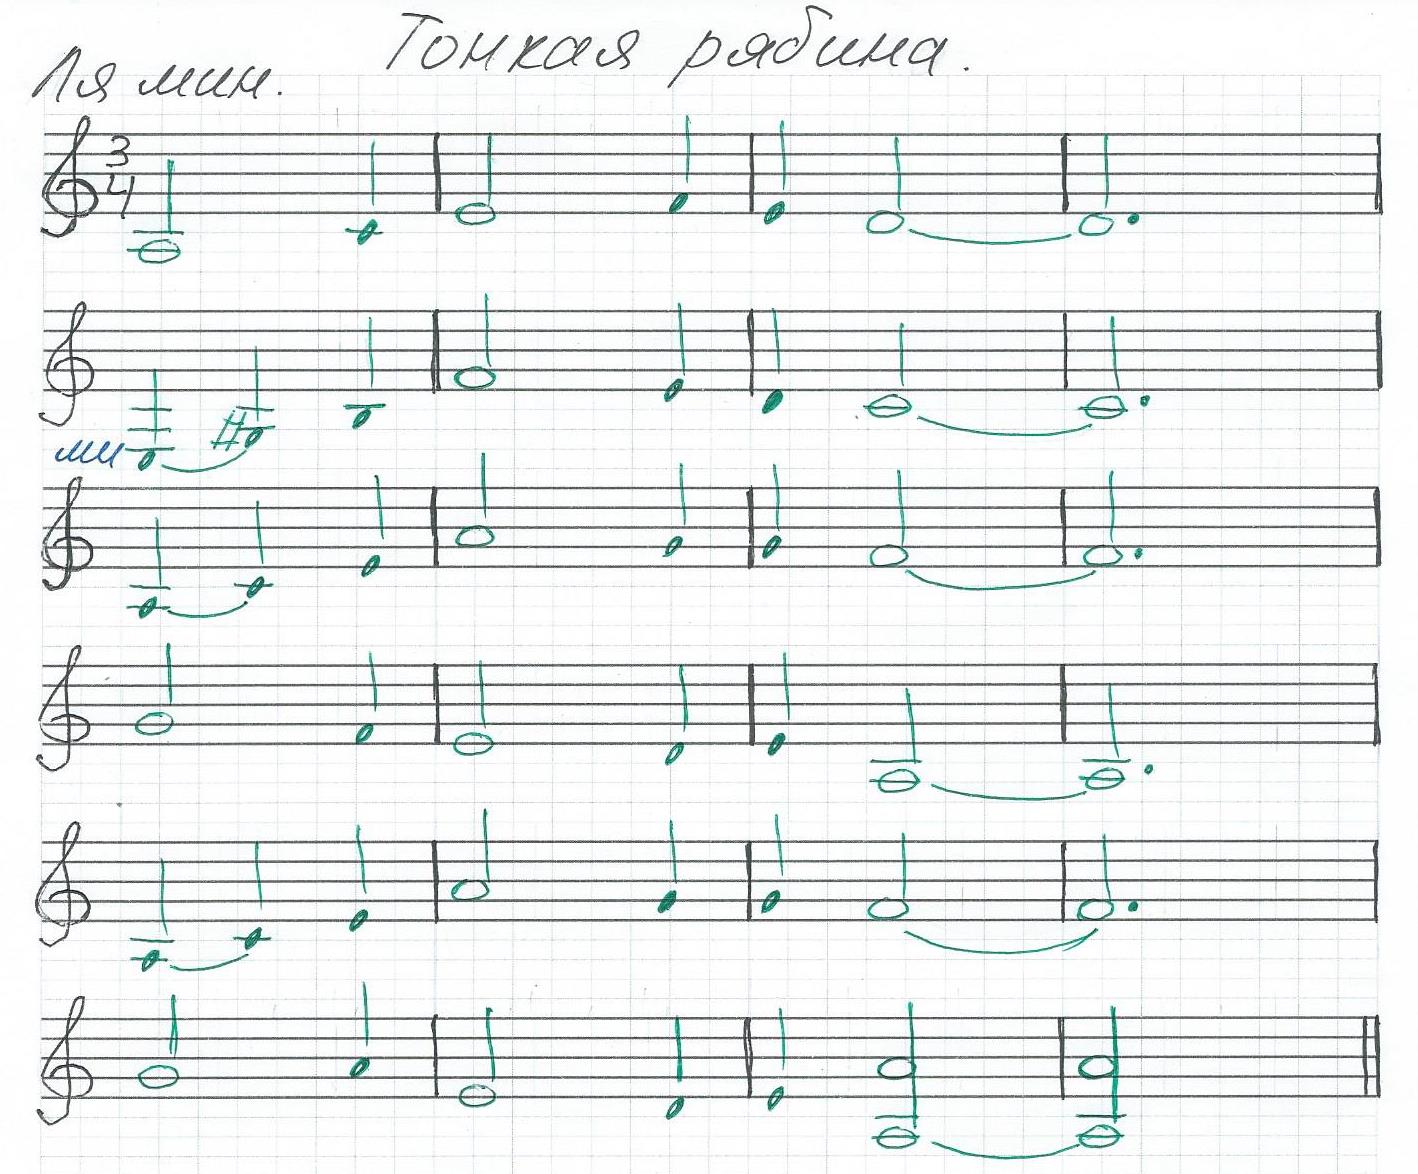 Тонкая рябина.
Ля мин.
3
4
ми